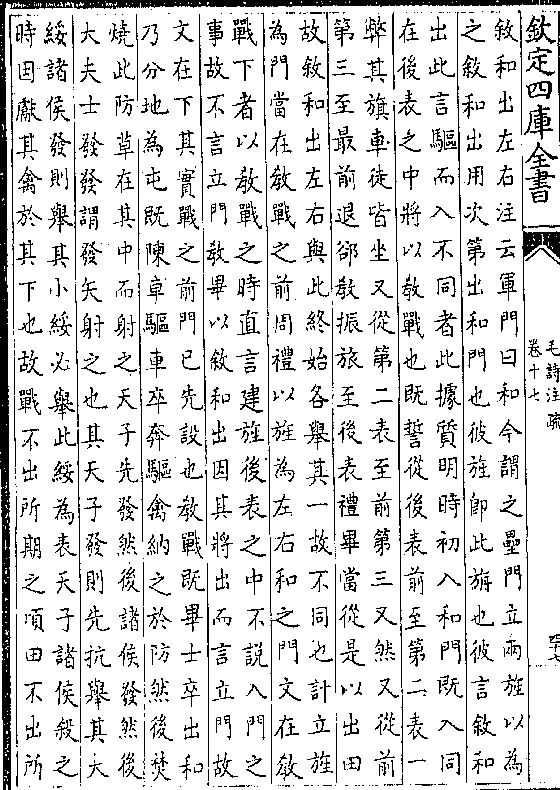 欽定四庫全書
毛詩注疏
卷十七
敘和出左右注云軍門曰和今謂之壘門立兩旌以為
之敘和出用次第出和門也彼旌即此旃也彼言敘和
出此言驅而入不同者此據質明時初入和門既入同
在後表之中將以教戰也既誓從後表前至第二表一
弊其旗車徒皆坐又從第二表至前第三又然又從前
第三至最前退郤教振旅至後表禮畢當從是以出田
故敘和出左右與此終始各舉其一故不同也計立旌
為門當在教戰之前周禮以旌為左右和之門文在敘
戰下者以教戰之時直言建旌後表之中不說入門之
事故不言立門教畢以敘和出因其將出而言立門故
文在下其實戰之前門已先設也教戰既畢士卒出和
乃分地為屯既陳車驅車卒奔驅禽納之於防然後焚
燒此防草在其中而射之天子先發然後諸侯發然後
大夫士發發謂發矢射之也其天子發則先抗舉其大
綏諸侯發則舉其小綏必舉此綏為表天子諸侯殺之
時因獻其禽於其下也故戰不出所期之頃田不出所